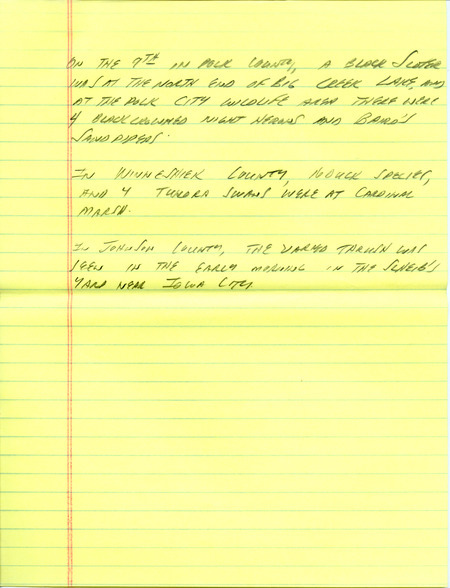 ON THE 7TH IN POLK COUNTY, A BLACK SCOTER
WAS AT THE NORTH END OF BIG CREEK LAKE, AND
AT THE POLK CITY WILDLIFE AREA THERE WERE
4 BLACK CROWNED NIGHT HERONS AND BAIRD'S
SANDPIPERS.
IN WINNESHIEK COUNTY, 10 DUCK SPECIES,
AND 4 TUNDRA SWANS WERE AT CARDINAL
MARSH.
IN JOHNSON COUNTY, THE VARIED THRUSH WAS
SEEN IN THE EARLY MORNING IN THE
YARD NEAR IOWA CITY